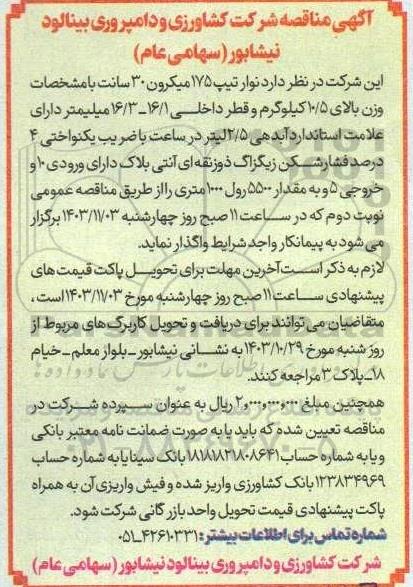 آگهی مناقصه شرکت کشاورزی و دامپروری بینالود
نیشابور (سهامی عام)
این شرکت در نظر دارد نوار تیپ ۱۷۵ میکرون ۳۰ سانت با مشخصات
وزن بالای ۱۰/۵ کیلوگرم و قطر داخلی ۱۶/۱ - ۱۶/۳ میلیمتر دارای
علامت استاندارد آبدهی ۲/۵ لیتر در ساعت با ضریب یکنواختی ۴
درصد فشارشکن زیگزاگ ذوزنقه ای آنتی بلاک دارای ورودی ۱۰ و
خروجی ۵ و به مقدار ۵۵۰۰ رول ۱۰۰۰ متری را از طریق مناقصه عمومی
نوبت دوم که در ساعت ۱۱ صبح روز چهارشنبه ۱۴۰۳/۱۱/۰۳ برگزار
می شود به پیمانکار واجد شرایط واگذار نماید.
لازم به ذکر است آخرین مهلت برای تحویل پاکت قیمت های
پیشنهادی ساعت ۱۱ صبح روز چهارشنبه مورخ ۱۴۰۳/۱۱/۰۳ است،
متقاضیان می توانند برای دریافت و تحویل کاربرگ های مربوط از
روز شنبه مورخ ۱۴۰۳/۱۰/۲۹ به نشانی نیشابور - بلوار معلم - خیام
۱۸ - پلاک ۳ مراجعه کنند.
همچنین مبلغ ۲,۰۰۰,۰۰۰,۰۰۰ ریال به عنوان سپرده شرکت در
مناقصه تعیین شده که باید یا به صورت ضمانت نامه معتبر بانکی
و یا به شماره حساب ۱۸۱۸۱۸۲۱۸۰۸۶۴۱ بانک سینا یا به شماره حساب
۱۲۳۸۳۴۹۶۹ بانک کشاورزی واریز شده و فیش واریزی آن به همراه
پاکت پیشنهادی قیمت تحویل واحد بازرگانی شرکت شود.
شماره تماس برای اطلاعات بیشتر: ۴۲۶۱۰۳۳۱-۰۵۱
شرکت کشاورزی و دامپروری بینالود نیشابور (سهامی عام)